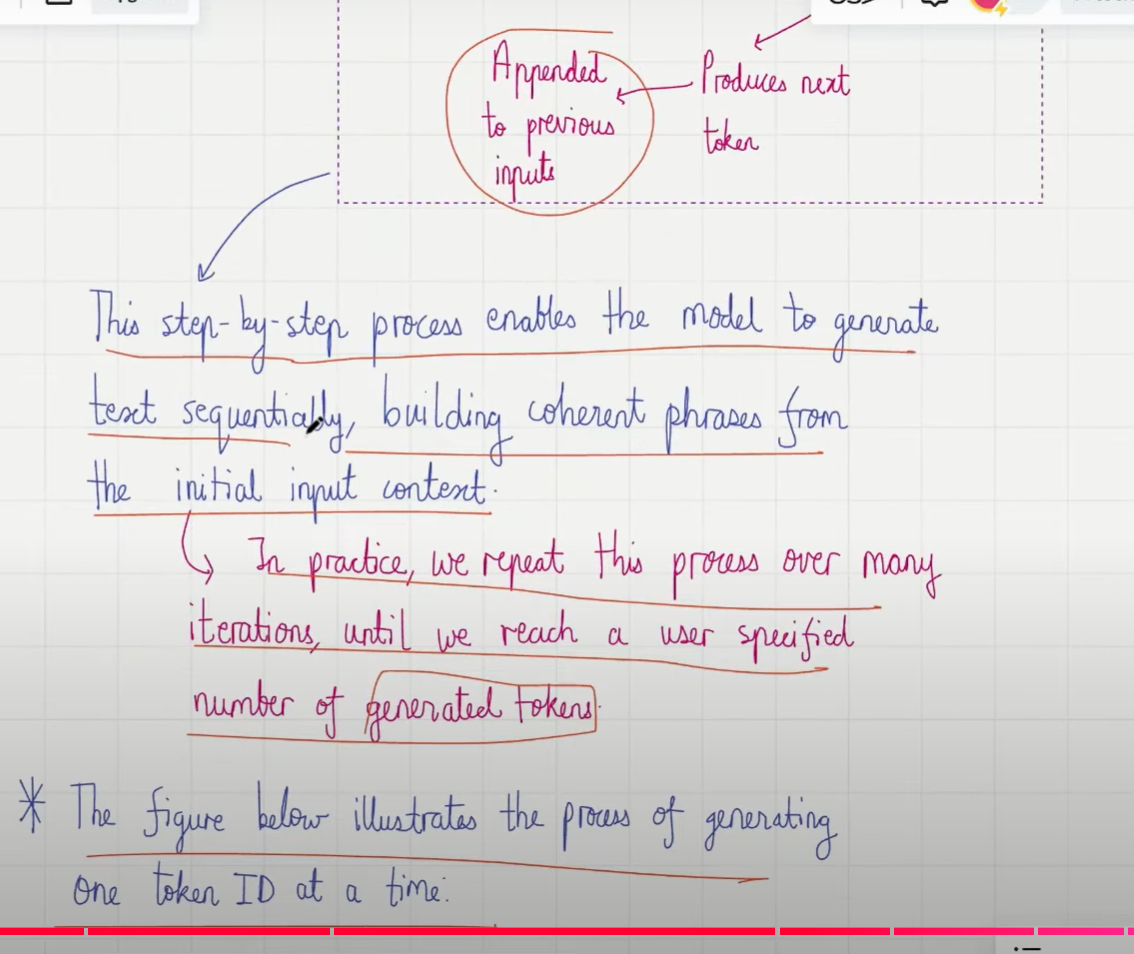 Appended
to previous
inputs
Produces next
token
This step-by-step process enables the model to generate
text sequentially, building coherent phrases from
the initial input context.
In practice, we repeat this process over many
iterations, until we reach a user specified
number of generated tokens.
* The figure below illustrates the process of generating
one token ID at a time: